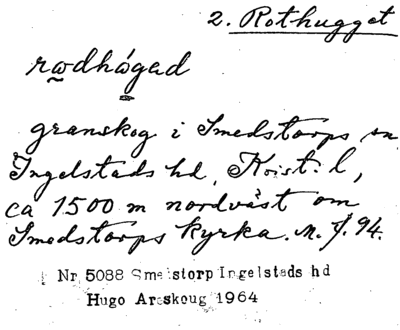 2. Rothugget
rωdhágad
granskog i Smedstorps sn,
Ingelstads hd, Krist. l,
ca 1500 m nordväst om
Smedstorps kyrka. M. J. 94.
Nr 5088 Smedstorp Ingelstads hd
Hugo Areskoug 1964